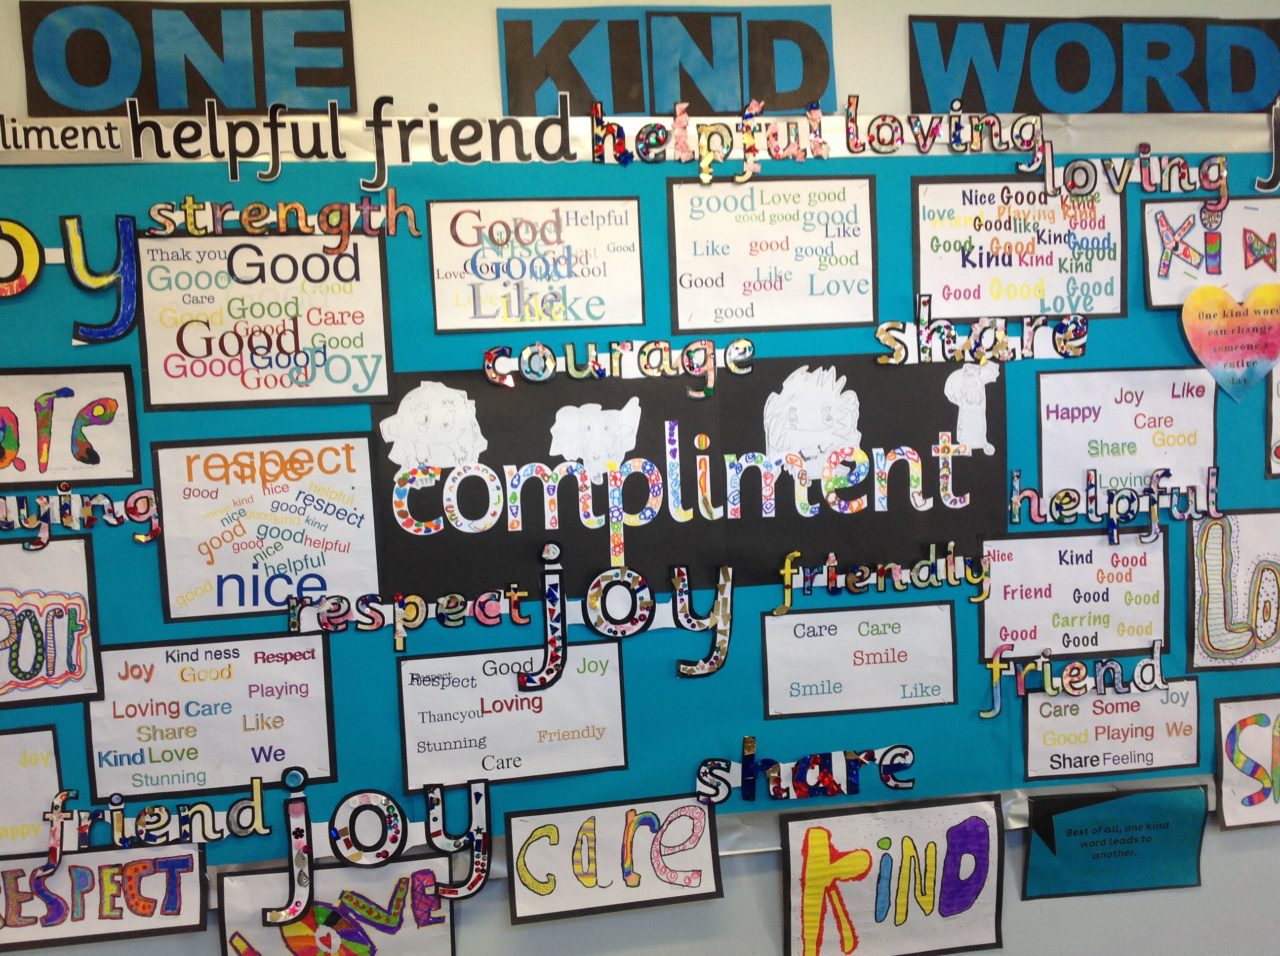 ONE KIND WORD
liment helpful friend helpful loving loving
oy strength
Thank you Good
Good
Care Good
Good
Good Good Care
Good Good
Good Good Joy
Good
Good Helpful
Nise
Good
Love Good Cool
Like Like
good Love good
good good good
Like
Like good good
good
Good Like
good Love
good
Nice Good Kind
love friend Playing Kind
Good like Good
Good Good Kind Good
Kind Kind Good
Kind
Good Good Good
Love
Kin
One kind word
can change
someone's
entire
day
courage share
compliment
are
respect
nice
good kind nice helpful
nice good respect
good good kind
good helpful
nice
helpful
good nice
Joy Like
Happy
Care
Share Good
Loving
aying
helpful
respect joy friendly
Nice Kind Good
Good
Friend Good Good
Carring
Good Good Good
Lo
Joy Kind ness Respect
Good
Playing
Loving Care
Share Like
Kind Love
We
Stunning
Good Joy
Respect
Loving
Thancyou
Friendly
Stunning
Care
Care Care
Smile
Smile Like
friend
Care Some Joy
Good Playing We
Share Feeling
Joy
appy
friend joy share
ESPECT
LOVE
care
KiND
Best of all, one kind
word leads to
another.